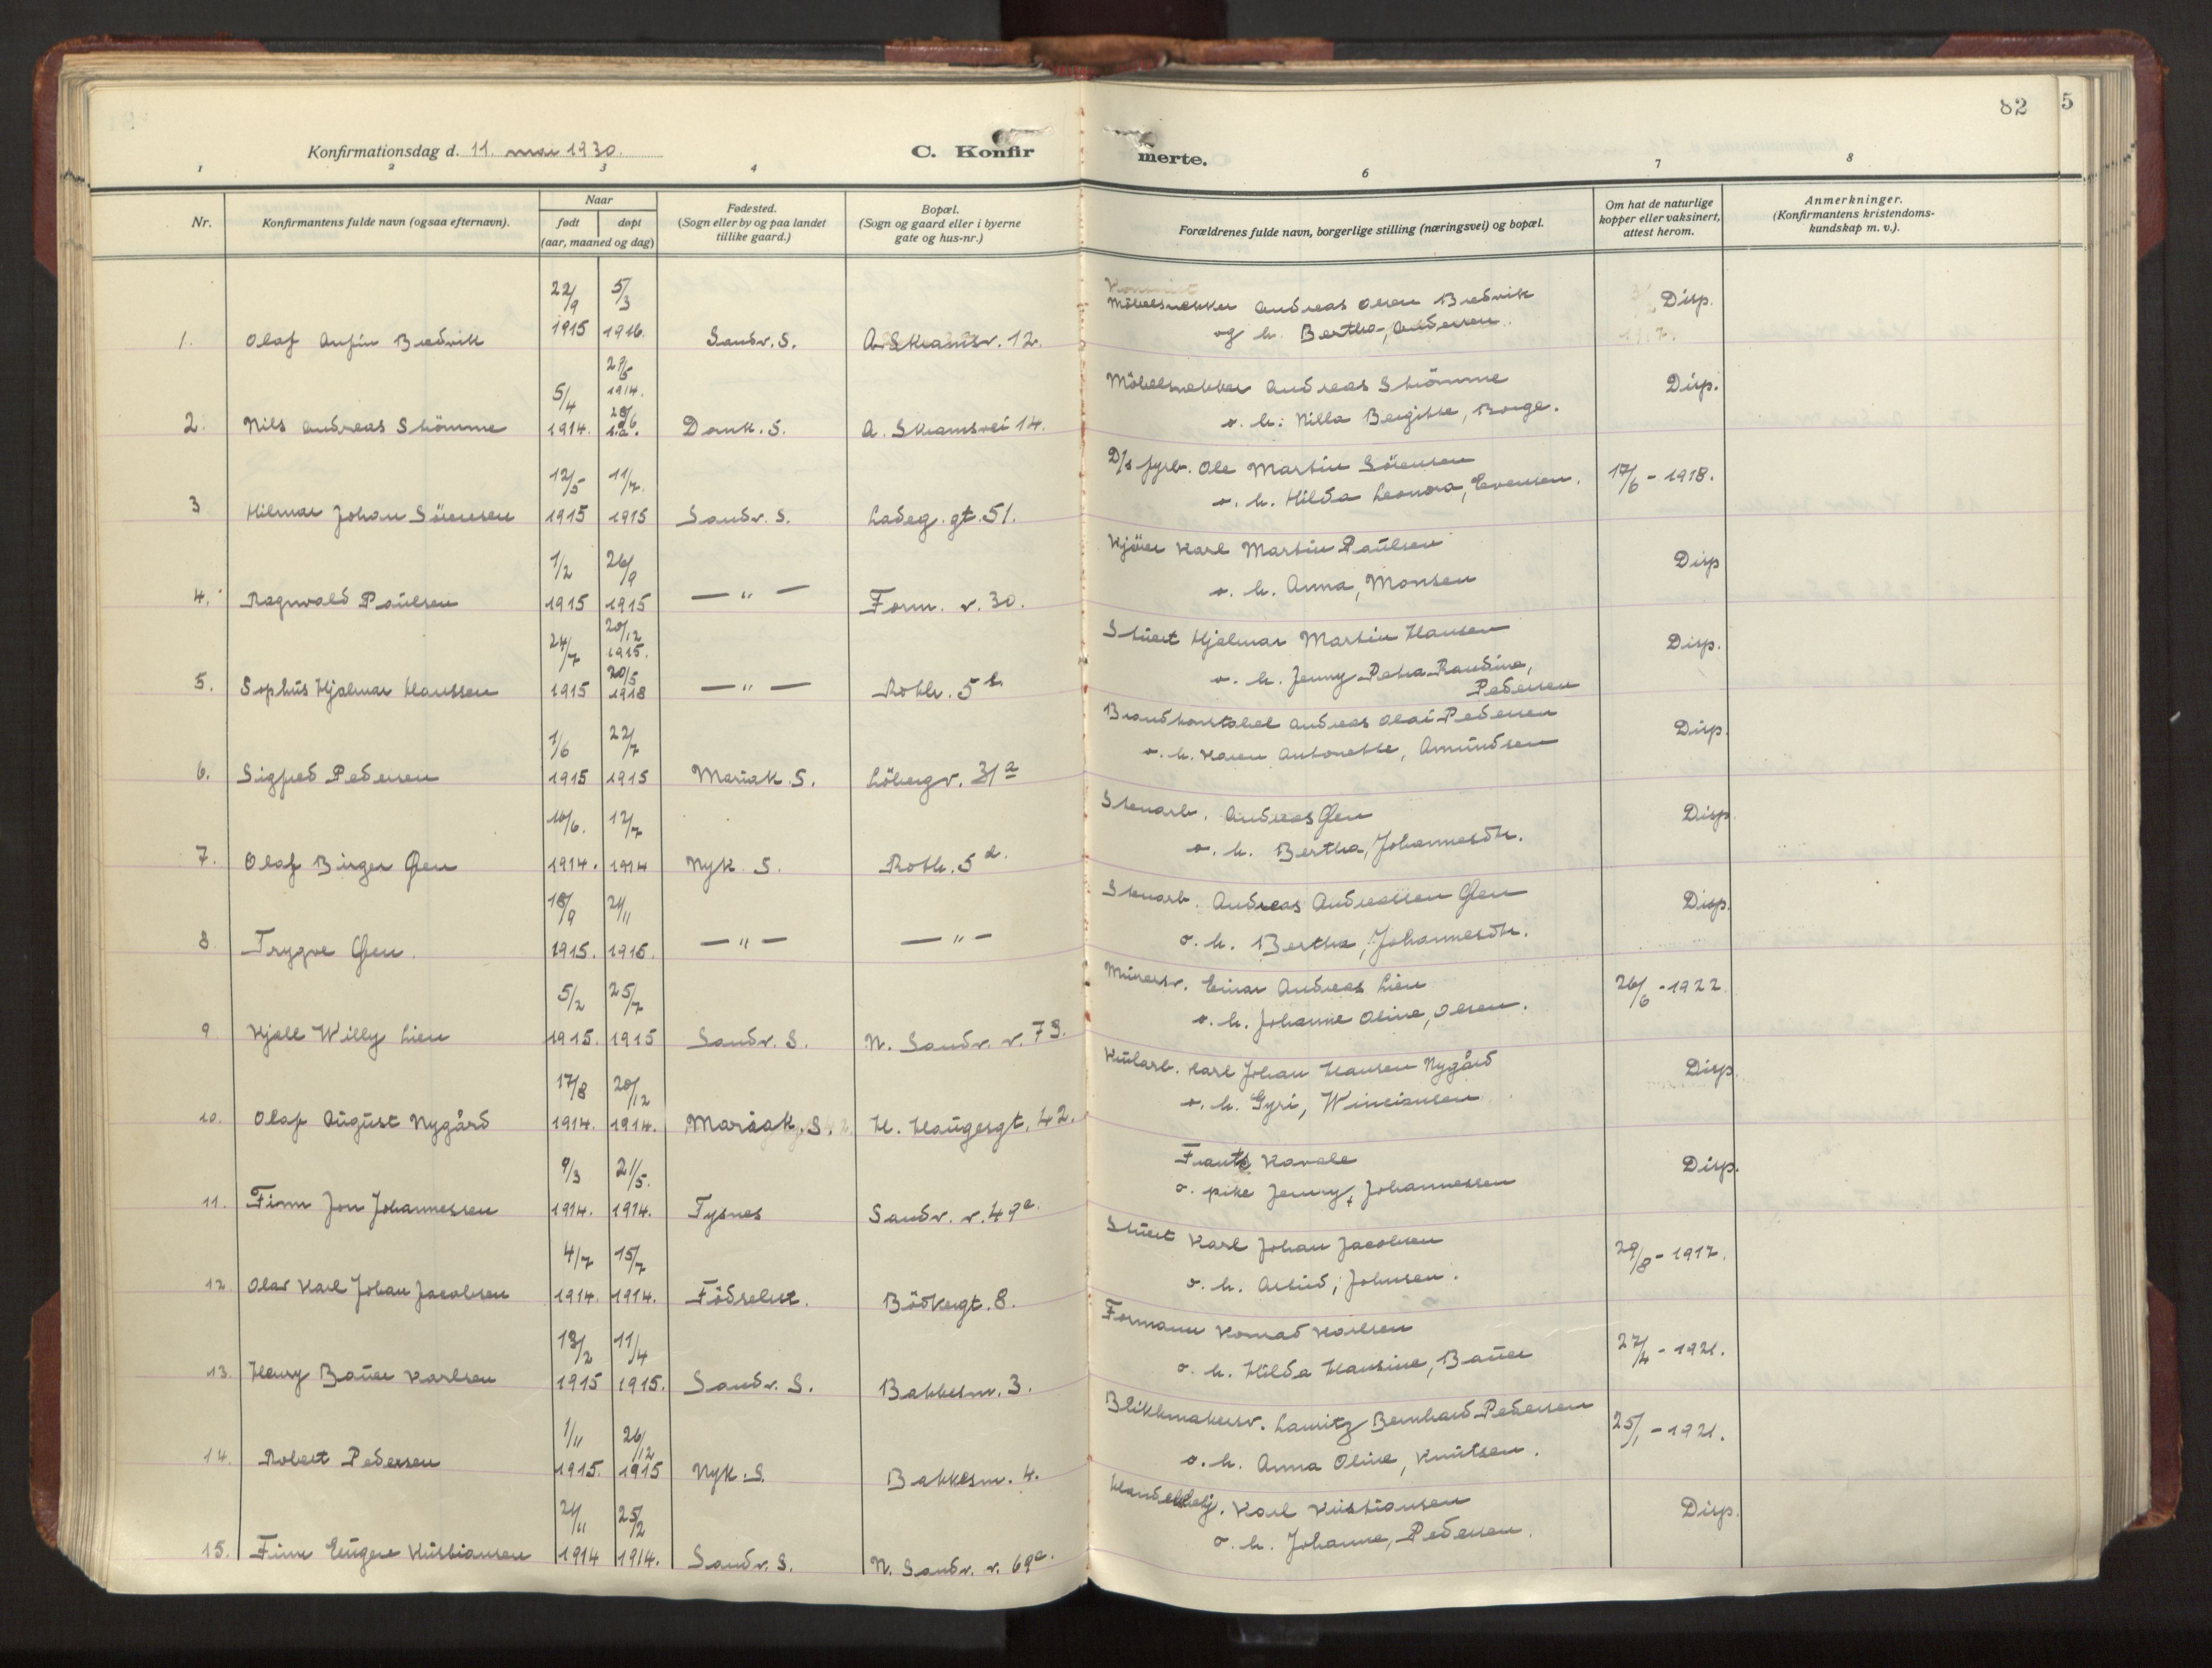 82 5
Konfirmationsdag d. 11. mai 1930. C. Konfir merte.
1 2 3 4 6 7 8
Nr. Konfirmantens fulde navn (ogsaa efternavn). Naar født døpt (aar, maaned og dag) Fødested. (Sogn eller by og paa landet tillike gaard.) Bopæl. (Sogn og gaard eller i byerne gate og hus-nr.) Forældrenes fulde navn, borgerlige stilling (næringsvei) og bopæl. Om hat de naturlige kopper eller vaksinert, attest herom. Anmerkninger. (Konfirmantens kristendoms- kundskap m. v.).
22/9 5/3 Möbelsnekker Andreas Olsen Bredvik Disp.
1. Olaf Anfin Bredvik 1915 1916. Sandv. S. A. Skramsv. 12. og h. Bertha, Andersen.
5/4 1914. Möbelsnekker Andreas Strömme Disp.
2. Nils Andreas Strömme 1914. s.a. Domk. S. A. Skramsvei 14. o. h: Nilla Bergitte, Borge.
12/5 11/7. D/s fyrb. Ole Martin Sörensen 17/6 - 1918.
3 Hilmar Johan Sörensen 1915 1915 Sandv. S. Ladeg. gt. 51. o. h. Hilda Leonora, Evensen.
1/2 26/9 Kjörer Karl Martin Paulsen Disp
4. Ragnvald Paulsen 1915 1915 — " — Form. v. 30. o. h. Anna, Monsen
24/7 20/12 1915. Stuert Hjalmar Martin Hansen Disp.
5. Sophus Hjalmar Hanssen 1915 20/5 1918 — " — Rothv. 5 b. o. h. Jenny Petra Randine, Pedersen
1/6 22/7 Brandkonstabel Andreas Olai Pedersen Disp.
6. Sigfred Pedersen 1915 1915 Mariak. S. Löbergv. 31 a o. h. Karen Antonette, Amundsen
10/6. 12/7 Stenarb. Andreas Gjen Disp.
7. Olaf Birger Gjen 1914. 1914 Nyk. S. Rothv. 5 d. o. h. Bertha, Johannesdtr.
18/9 21/11 Stenarb. Andreas Andreassen Gjen Disp.
8 Trygve Gjen. 1915. 1915. — " — — " — o. h. Bertha, Johannesdtr.
5/2 25/7 Murersv. Einar Andreas Lien 26/6 - 1922.
9 Kjell Willy Lien 1915. 1915 Sandv. S. N. Sandv. v. 73. o. h. Johanne Oline, Olsen.
17/8 20/12 Kularb. Karl Johan Hansen Nygård Disp.
10. Olaf August Nygård 1914. 1914. Mariak. S. H. Haugesgt. 42. o. h. Gyri,
9/3 21/5. Disp.
11. Finn Jon Johannessen 1914. 1914. Tysnes Sandv. v. 49 a. o. pike Jenny, Johannessen
4/7 15/7 Stuert Karl Johan Jacobsen 29/8 - 1917.
12. Olav Karl Johan Jacobsen 1914. 1914. Födselsst. Bödkergt. 8. o. h. Astrid, Johnsen.
13/2 11/4 Formann Konrad Karlsen 27/4 - 1921.
13. Henry Bauer Karlsen 1915 1915. Sandv. S. Bakkesm. 3. o. h. Hilda Hansine, Bauer
1/11 26/12 Blikkmakersv. Lauritz Bernhard Pedersen 25/1 - 1921.
14. Robert Pedersen 1915. 1915 Nyk. S. Bakkesm. 4. o. h. Anna Oline, Knutsen.
21/11 25/2 Handelsbetj. Karl Kristiansen Disp.
15. Finn Eugen Kristiansen 1914 1914. Sandv. S. N. Sandv. v. 69 a. o. h. Johanne, Pedersen.